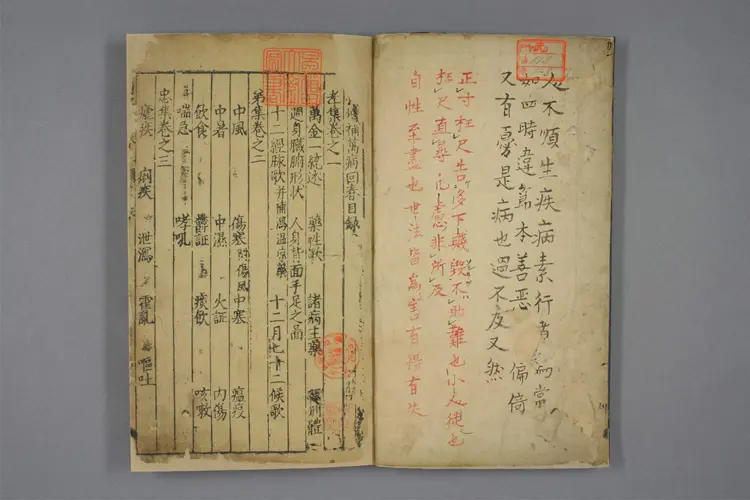 不順生疾病素行者為常
如四時違篤本善惡 偏倚
又有憂是病也過不及又然
正寸枉尺告多下職毀不助難也小人徒也
枉尺直尋凡慮非所及
自性至盡也世法皆為害有得有失
補萬病回春目錄
孝集卷之一
萬金一統述 藥性歌 諸病主藥 形體
週身臟腑形狀 人身背面手足之圖
十二經脉歌并補瀉溫凉藥 十二月七十二候歌
弟集卷之二
中風 傷寒附傷風 中寒 瘟疫
中暑 中濕 火証 內傷
飲食 鬱証 痰飲 咳嗽
喘急 哮吼
忠集卷之三
瘧疾 痢疾 泄瀉 霍亂 嘔吐